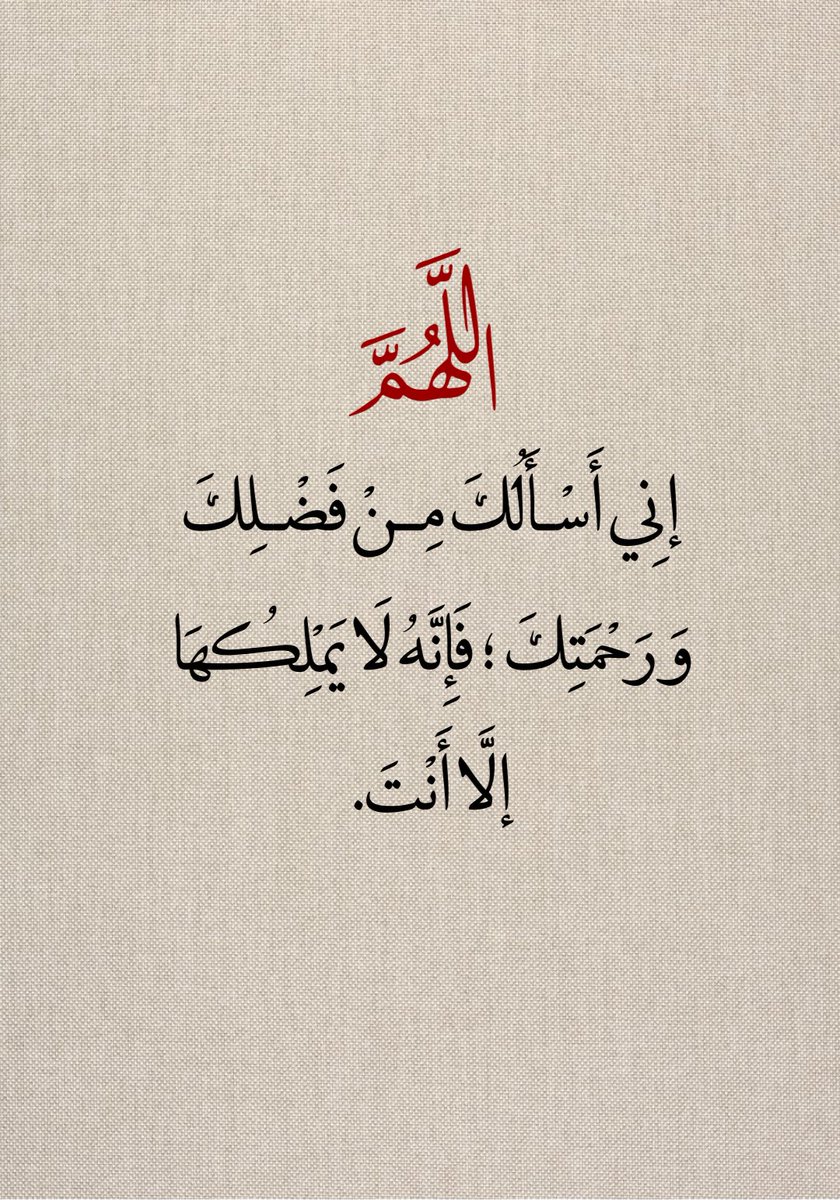 اللَّهُمَّ
إِنِي أَسْأَلُكَ مِنْ فَضْلِكَ
وَرَحْمَتِكَ ؛ فَإِنَّهُ لَا يَمْلِكُهَا
إِلَّا أَنْتَ.